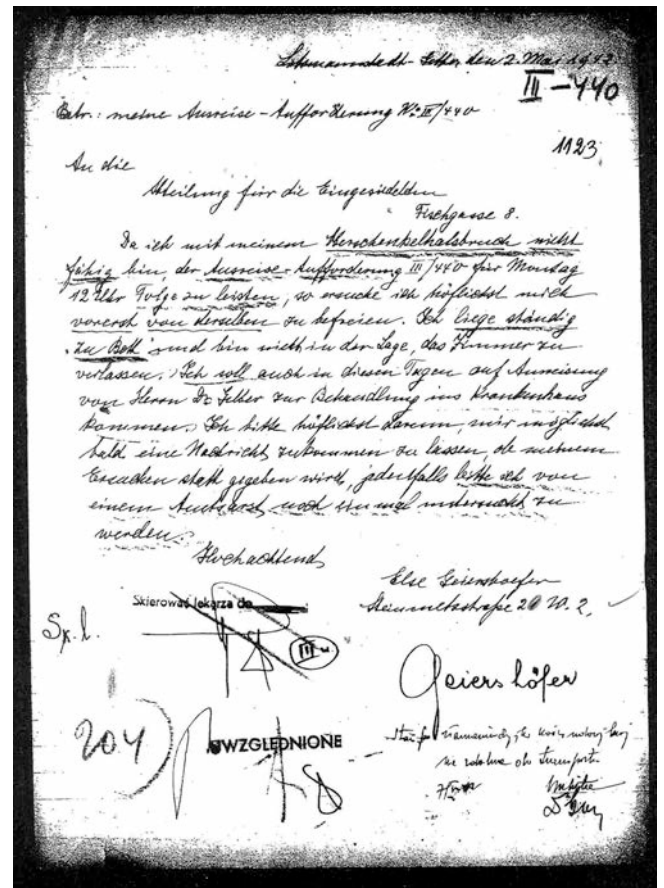 Litzmannstadt-Getto den 2. Mai 1942
III-440
Betr.: meine Ausreise-Aufforderung No III/440
1123
An die
Abteilung für die Eingesiedelten
Fischgasse 8.
Da ich mit meinem Oberschenkelhalsbruch nicht
fähig bin, der Ausreise-Aufforderung III/440 für Montag
12 Uhr Folge zu leisten, so ersuche ich höflichst mich
vorerst von derselben zu befreien. Ich liege ständig
zu Bett und bin nicht in der Lage, das Zimmer zu
verlassen. Ich soll auch in diesen Tagen auf Anweisung
von Herrn Dr. zur Behandlung ins Krankenhaus
kommen. Ich bitte höflichst darum, mir möglichst
bald eine Nachricht zukommen zu lassen, ob meinem
Ersuchen statt gegeben wird, jedenfalls bitte ich von
einem Amtsarzt noch einmal untersucht zu
werden.
Hochachtend
Else Geiershoefer
Skierować lekarza do
Sp. l.
III
Geiershöfer
204
UWZGLĘDNIONE
nie zdolna do transportu